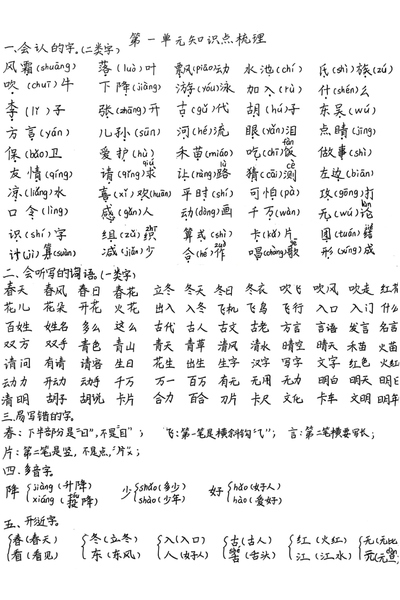 第一单元知识点梳理
一.会认的字。(二类字)
风霜(shuāng) 落(luò)叶 飘(piāo)动 水池(chí) 氏(shì)族(zú)
吹(chuī)牛 下降(jiàng) 游(yóu)泳 加入(rù) 什(shén)么
李(lǐ)子 张(zhāng)开 古(gǔ)代 胡(hú)子 东吴(wú)
方言(yán) 儿孙(sūn) 河(hé)流 眼(yǎn)泪 点睛(jīng)
保(bǎo)卫 爱护(hù) 禾苗(miáo) 吃(chī)饭 做事(shì)
友情(qíng) 请(qǐng)求 让(ràng)路 猜(cāi)测 左边(biān)
凉(liáng)水 喜(xǐ)欢(huān) 平时(shí) 可怕(pà) 攻(gōng)打
口令(lìng) 感(gǎn)人 动(dòng)画 千万(wàn) 无(wú)论
识(shí)字 组(zǔ)织 算式(shì) 卡(kǎ)片 团(tuán)结
计(jì)算(suàn) 减(jiǎn)少 合(hé)作 唱(chàng)歌 形(xíng)成
二.会听写的词语。(一类字)
春天 春风 春日 春花 立冬 冬天 冬日 冬衣 吹飞 吹风 吹走 红花
花儿 花朵 开花 火花 出入 入冬 飞机 飞鸟 飞行 入口 入门 什么
百姓 姓名 多么 这么 古代 古人 古文 古老 方言 言语 发言 名言
双方 双手 青色 青山 青天 青草 清风 清水 晴空 晴天 禾苗 火苗
请问 有请 请客 生日 花生 出生 生字 汉字 写字 文字 红色 火红
动力 开动 动手 千万 万一 百万 有无 无用 无力 明白 明天 明日
清明 胡子 胡说 卡片 合力 百合 刀片 卡尺 文化 卡车 文明 明年
三.易写错的字。
春：下半部分是“日”,不是“目”； 飞:第一笔是横斜钩“乁”； 言：第二笔横要写长；
片：第二笔是竖，不是点,“片”；
四.多音字。
降 jiàng (升降) xiáng (投降) 少 shǎo(多少) shào(少年) 好 hǎo(好人) hào(爱好)
五、形近字。
春(春天) 冬(立冬) 入(入口) 古(古人) 红(火红)
看(看见) 东(东风) 人(好人) 舌(舌头) 江(江水)